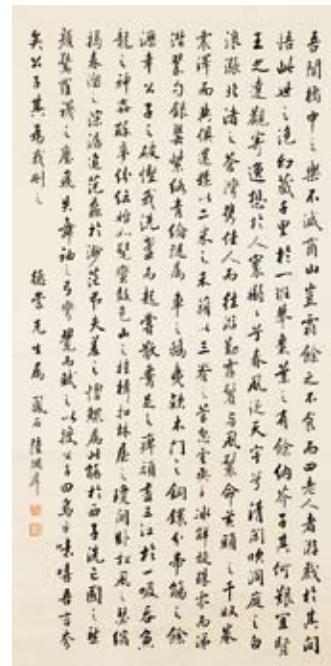 吾聞橘中之樂不減商山豈霜餘之不食而四老人者游戲於其間
悟此世之泡幻藏千里於一班舉棗葉之有餘納芥子其何艱宜賢
王之達觀寄逸想於人寰嫋嫋兮春風泛天宇兮清閑吹洞庭之白
浪漲北渚之蒼灣攜佳人而往游勤霧鬢與風鬟命黃頭之千奴卷
震澤而與俱還糅以二米之禾藉以三脊之菅忽雲烝而冰解旋珠零而涕
潸翠勺銀罌紫絡青綸隨屬車之鴟夷款木門之銅鐶分帝觴之餘
瀝幸公子之破慳我洗盞而起嘗散腰足之痺頑盡三江於一吸吞魚
龍之神姦醉夢紛紜始如髦蠻鼓包山之桂楫扣林屋之瓊關臥松風之瑟縮
揭春溜之淙潺追范蠡於渺茫弔夫差之惸鰥屬此觴於西子洗亡國之愁
顏驚羅襪之塵飛失舞袖之弓彎覺而賦之以授公子曰烏乎噫嘻吾言夸
矣公子其為我刪之
先生屬 鳳石陸潤庠